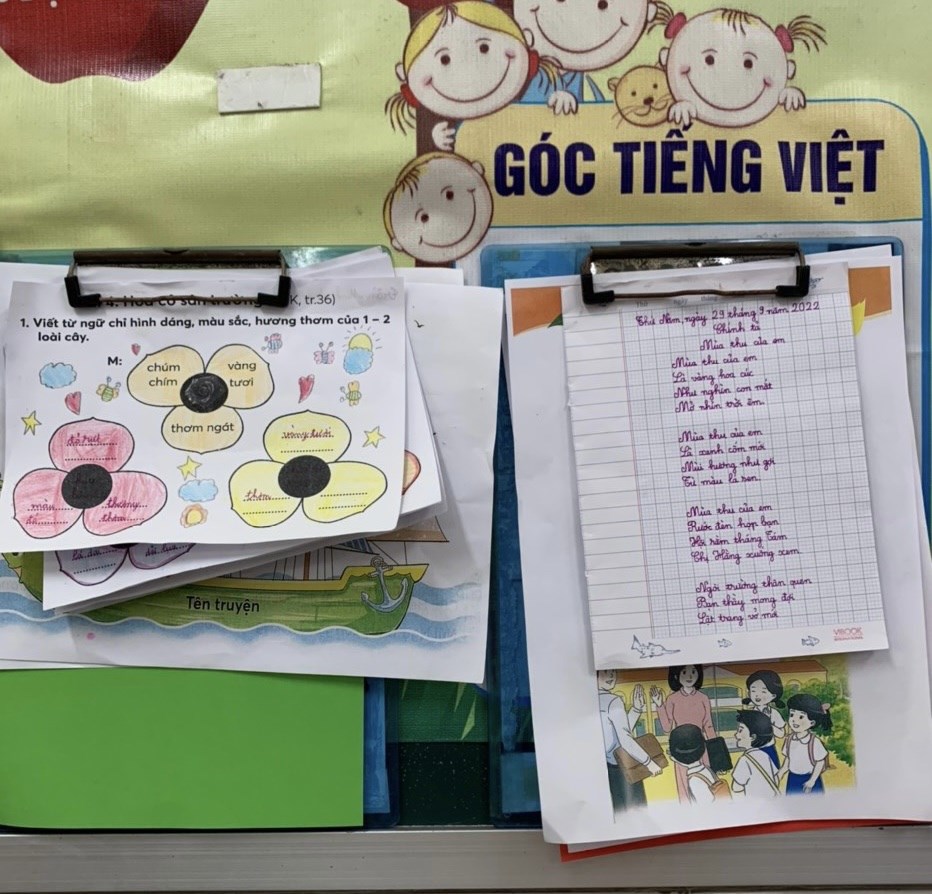 GÓC TIẾNG VIỆT
4. Hoa cỏ sân trường K, tr.36)
1. Viết từ ngữ chỉ hình dáng, màu sắc, hương thơm của 1 – 2
loài cây.
M:
chúm
chím
vàng
tươi
thơm ngát
đỏ rực
vàng tươi
thơm
thoang
Tên truyện
Thứ Năm, ngày 29 tháng 9 năm 2022
Chính tả
Mùa thu của em
Mùa thu của em
Là vàng hoa cúc
Như nghìn con mắt
Mở nhìn trời êm.
Mùa thu của em
Là xanh cốm mới
Mùi hương như gợi
Từ màu lá sen.
Mùa thu của em
Rước đèn họp bạn
Hội rằm tháng Tám
Chị Hằng xuống xem.
Ngôi trường thân quen
Bạn thầy mong đợi
Lật trang vở mới
VIBOOK